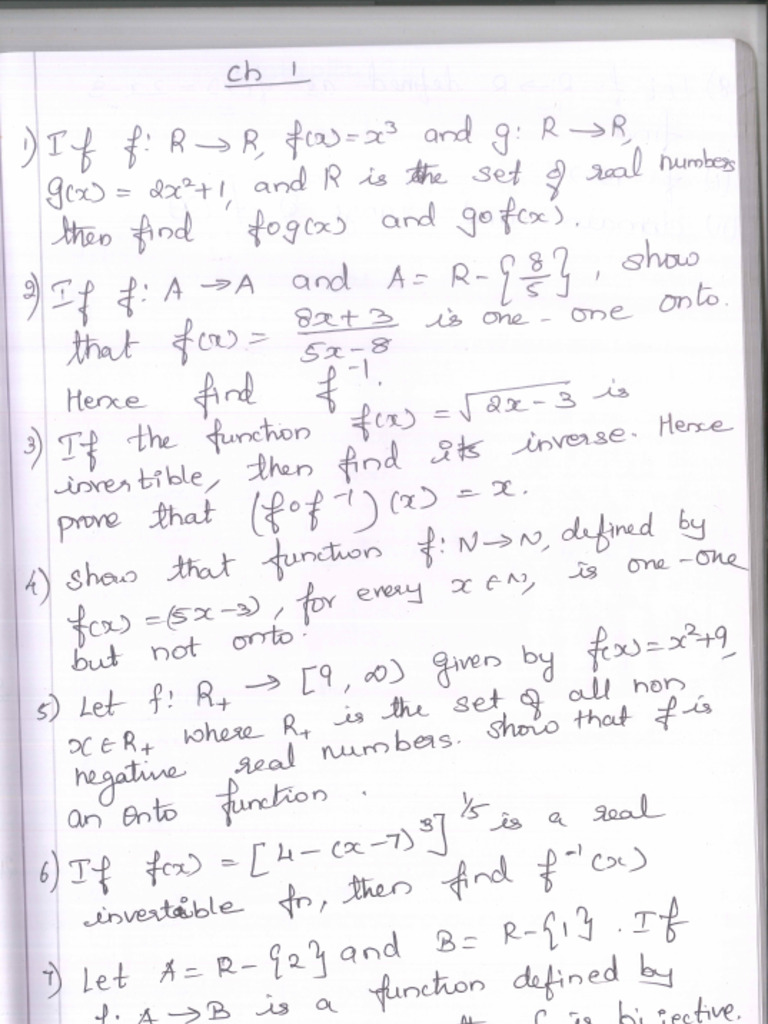 ch 1
1) If f: R → R, f(x) = x³ and g: R → R,
g(x) = 2x²+1, and R is the set of real numbers
then find fog(x) and gof(x)
2) If f: A → A and A = R - {8/5}, show
that f(x) = (8x+3)/(5x-8) is one-one onto.
Hence find f⁻¹.
3) If the function f(x) = √(2x-3) is
invertible, then find its inverse. Hence
prove that (fof⁻¹)(x) = x.
4) Show that function f: N→N, defined by
f(x) = (5x-3), for every x ∈ N, is one-one
but not onto.
5) Let f: R₊ → [9, ∞) given by f(x) = x²+9,
x∈R₊ where R₊ is the set of all non
negative real numbers. Show that f is
an onto function.
6) If f(x) = [4-(x-7)³]^1/5 is a real
invertible fn, then find f⁻¹(x)
7) Let A = R-{2} and B = R-{1}. If
f: A → B is a function defined by
f is bijective.